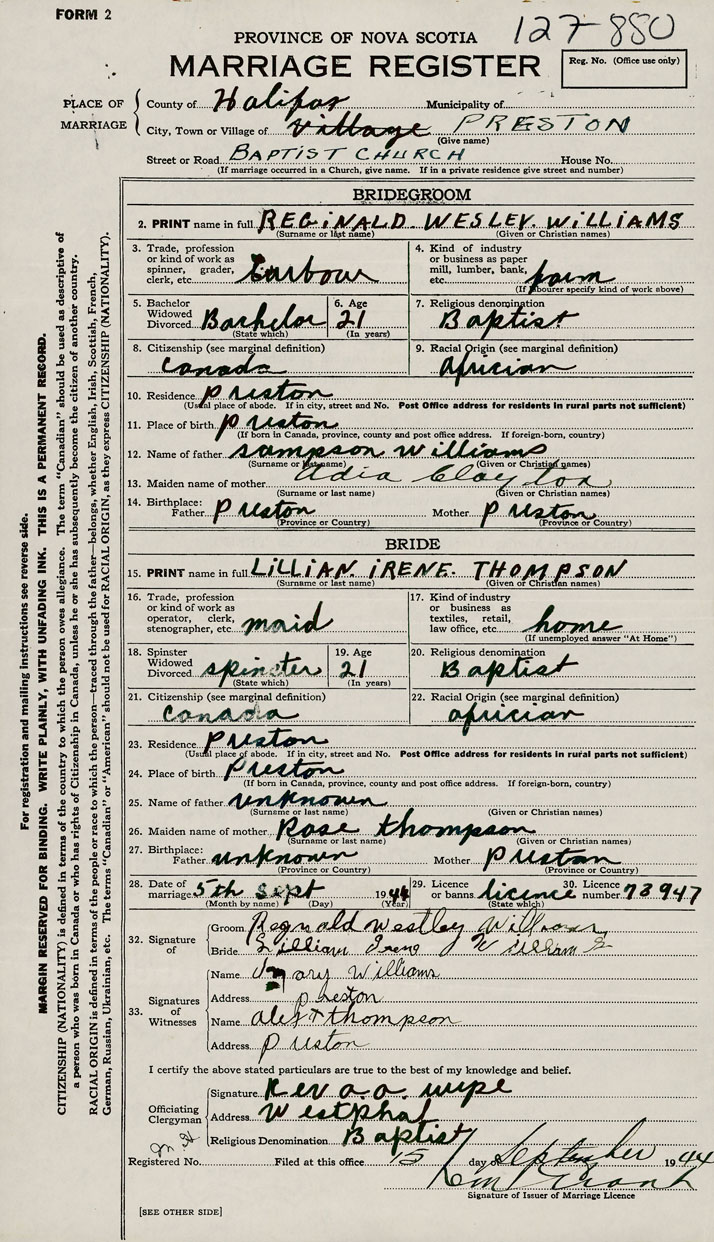 FORM 2
127-880
PROVINCE OF NOVA SCOTIA
MARRIAGE REGISTER
Reg. No. (Office use only)
PLACE OF MARRIAGE
County of Halifax Municipality of
City, Town or Village of village PRESTON
(Give name)
Street or Road BAPTIST CHURCH House No.
(If marriage occurred in a Church, give name. If in a private residence give street and number)
BRIDEGROOM
2. PRINT name in full REGINALD WESLEY WILLIAMS
(Surname or last name) (Given or Christian names)
3. Trade, profession or kind of work as spinner, grader, clerk, etc. Larbour
4. Kind of industry or business as paper mill, lumber, bank, etc. farm
(If labourer specify kind of work above)
5. Bachelor Widowed Divorced Bachelor
(State which)
6. Age 21
(In years)
7. Religious denomination Baptist
8. Citizenship (see marginal definition) Canada
9. Racial Origin (see marginal definition) africian
10. Residence Preston
(Usual place of abode. If in city, street and No. Post Office address for residents in rural parts not sufficient)
11. Place of birth Preston
(If born in Canada, province, county and post office address. If foreign-born, country)
12. Name of father Sampson Williams
(Surname or last name) (Given or Christian names)
13. Maiden name of mother Adia Clayton
(Surname or last name) (Given or Christian names)
14. Birthplace: Father Preston Mother Preston
(Province or Country) (Province or Country)
BRIDE
15. PRINT name in full LILLIAN IRENE THOMPSON
(Surname or last name) (Given or Christian names)
16. Trade, profession or kind of work as operator, clerk, stenographer, etc. maid
17. Kind of industry or business as textiles, retail, law office, etc. home
(If unemployed answer "At Home")
18. Spinster Widowed Divorced spincter
(State which)
19. Age 21
(In years)
20. Religious denomination Baptist
21. Citizenship (see marginal definition) Canada
22. Racial Origin (see marginal definition) africian
23. Residence Preston
(Usual place of abode. If in city, street and No. Post Office address for residents in rural parts not sufficient)
24. Place of birth Preston
(If born in Canada, province, county and post office address. If foreign-born, country)
25. Name of father unknown
(Surname or last name) (Given or Christian names)
26. Maiden name of mother Rose thompson
(Surname or last name) (Given or Christian names)
27. Birthplace: Father unknown Mother Preston
(Province or Country) (Province or Country)
28. Date of marriage 5th Sept 1944
(Month by name) (Day) (Year)
29. Licence or banns licence
(State which)
30. Licence number 73947
32. Signature of
Groom Reginald Westley Williams
Bride Lilliam Irene Williams
33. Signatures of Witnesses
Name Mary Williams
Address Preston
Name thompson
Address Preston
I certify the above stated particulars are true to the best of my knowledge and belief.
Officiating Clergyman
Signature Rev a.a. wipe
Address Westphal
Religious Denomination Baptist
Registered No. Filed at this office 15 day of September 1944
Signature of Issuer of Marriage Licence
[SEE OTHER SIDE]
For registration and mailing instructions see reverse side.
MARGIN RESERVED FOR BINDING. WRITE PLAINLY, WITH UNFADING INK. THIS IS A PERMANENT RECORD.
CITIZENSHIP (NATIONALITY) is defined in terms of the country to which the person owes allegiance. The term "Canadian" should be used as descriptive of
a person who was born in Canada or who has rights of Citizenship in Canada, unless he or she has subsequently become the citizen of another country.
RACIAL ORIGIN is defined in terms of the people or race to which the person—traced through the father—belongs, whether English, Irish, Scottish, French,
German, Russian, Ukrainian, etc. The terms "Canadian" or "American" should not be used for RACIAL ORIGIN, as they express CITIZENSHIP (NATIONALITY).